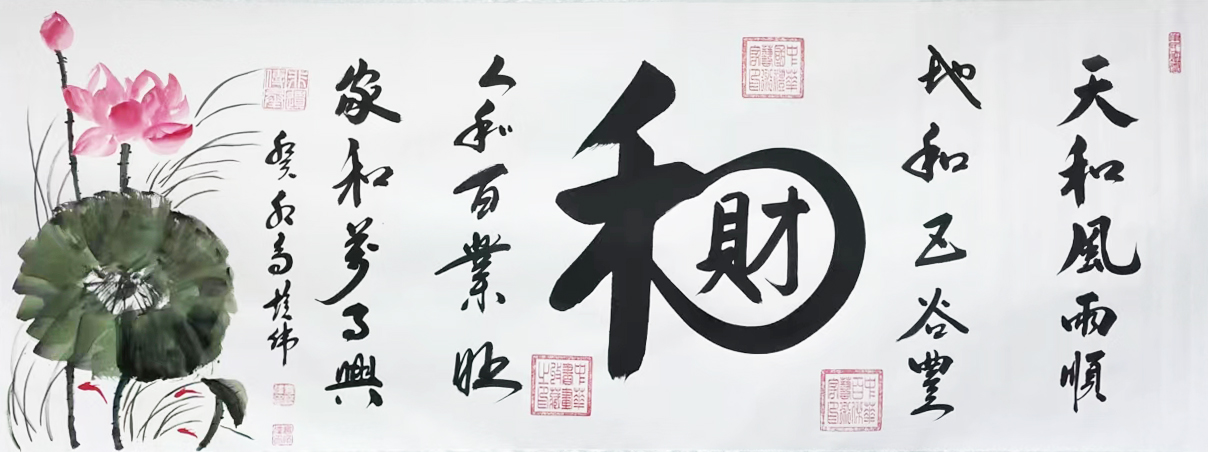 天和風雨順
地和五谷豐
和
財
人和百業旺
家和萬事興
癸卯高